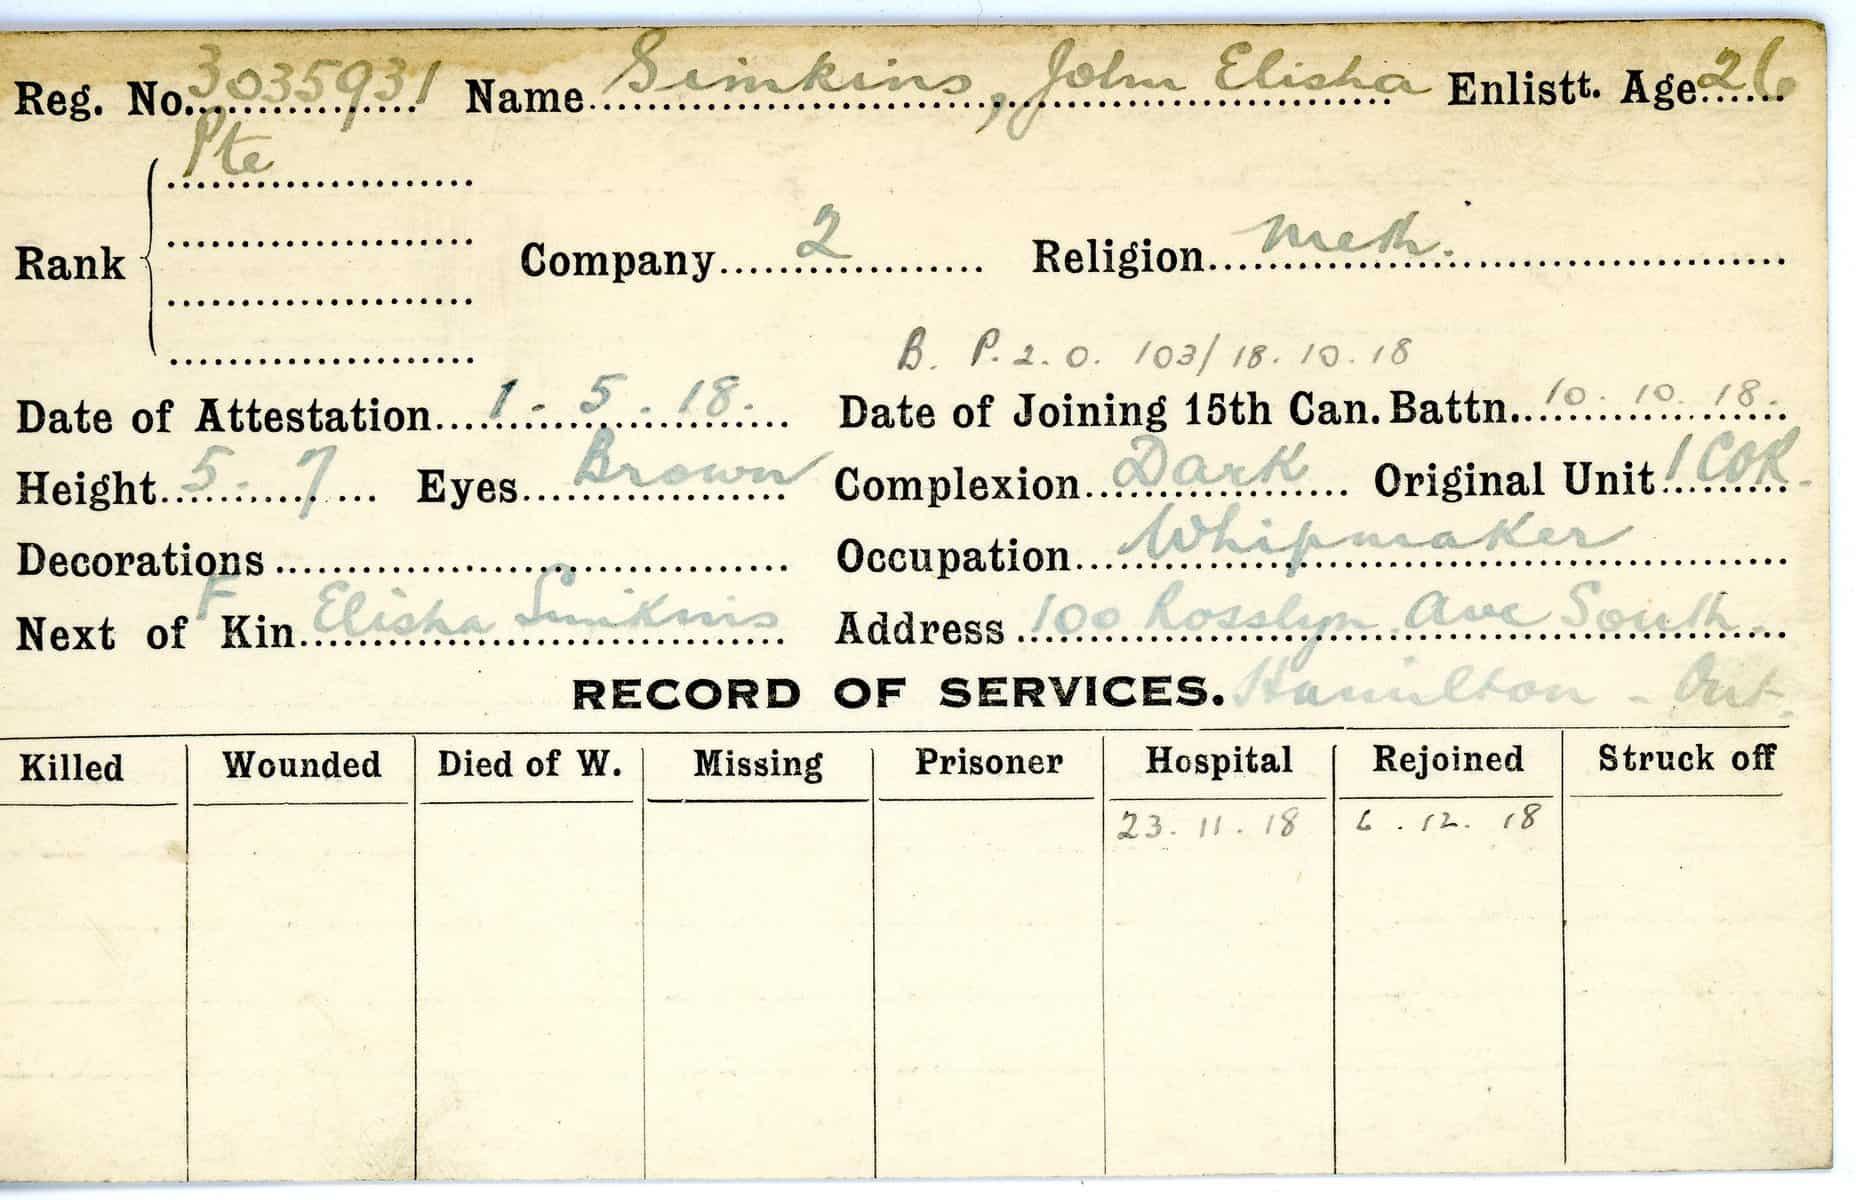 Reg. No. 3035931 Name Simkins, John Elisha Enlistt. Age 26
Pte
Rank Company 2 Religion Meth.
B. P.2.0. 103/18.10.18
Date of Attestation 1.5.18. Date of Joining 15th Can. Battn. 10.10.18.
Height 5.7 Eyes Brown Complexion Dark Original Unit 1 COR.
Decorations Occupation Whipmaker
F
Next of Kin Elisha Simkins Address 100 Rosslyn Ave South
RECORD OF SERVICES. Hamilton - Ont.
Killed Wounded Died of W. Missing Prisoner Hospital Rejoined Struck off
23.11.18 6.12.18